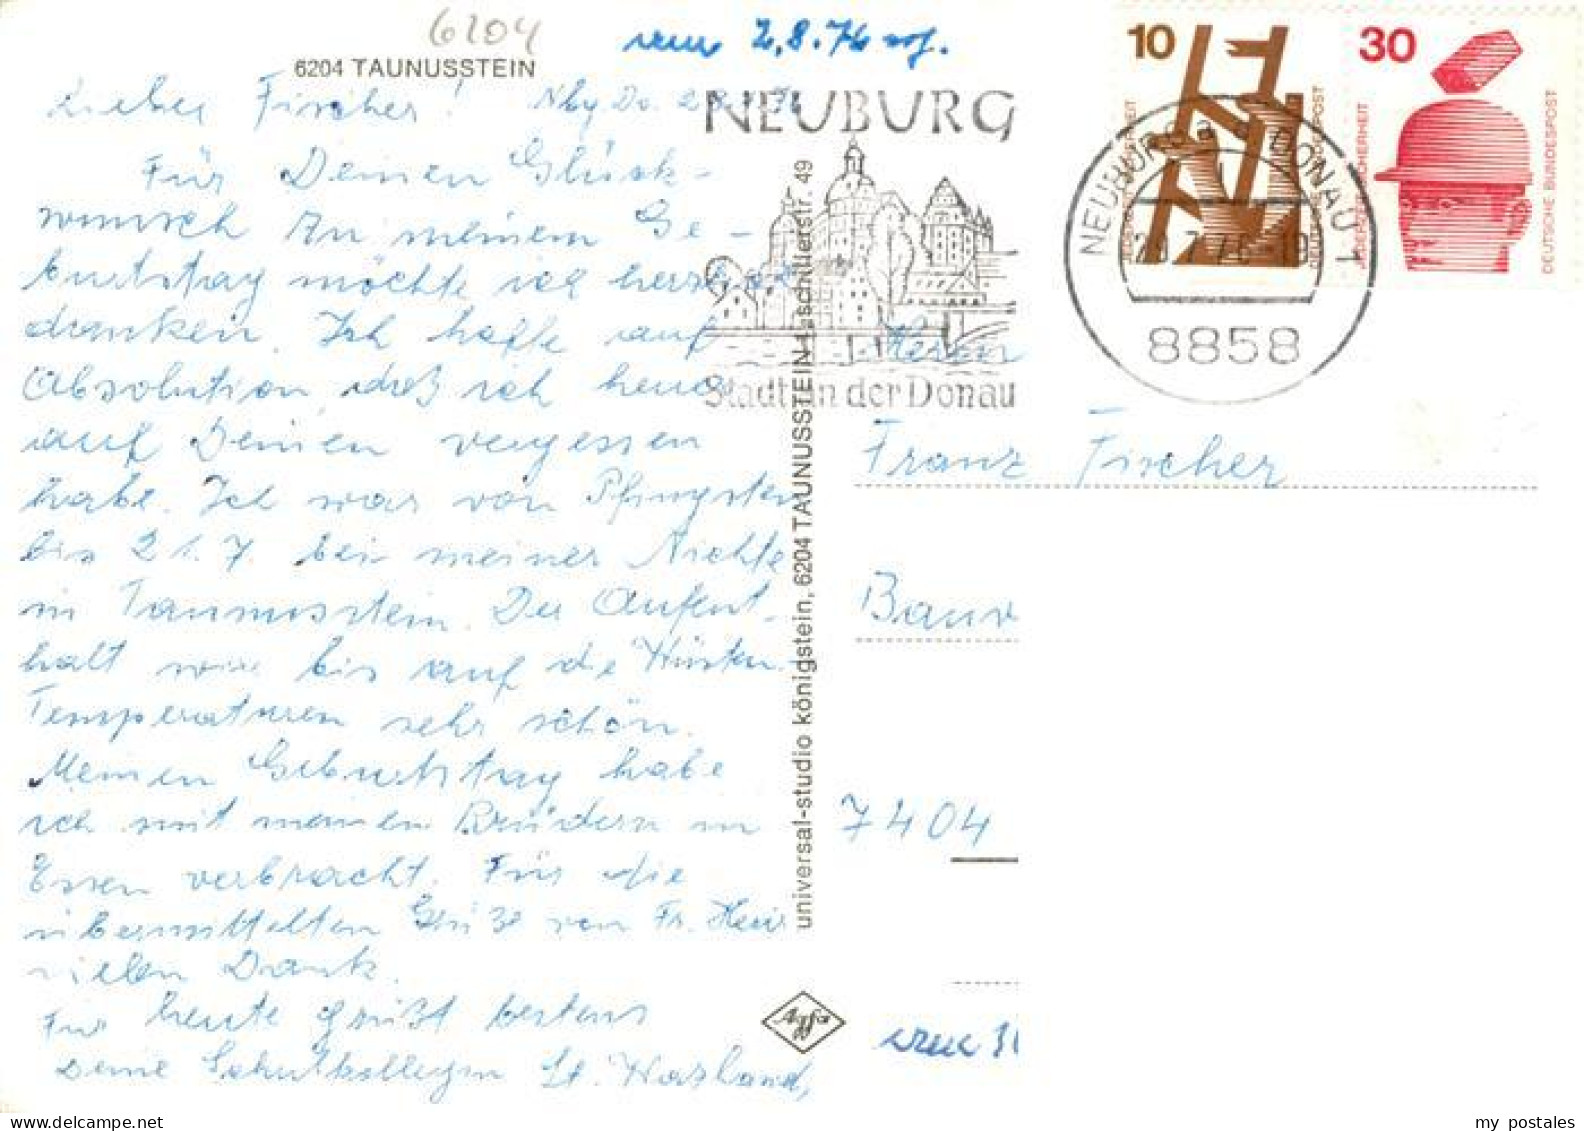 6204
6204 TAUNUSSTEIN
Lieber Fischer! Nbg Do.
Für Deinen Glück-
wunsch zu meinem Ge-
burtstag möchte ich herzlich
danken. Ich hoffe auf
Absolution, daß ich heuer
auf Deinen vergessen
habe. Ich war von Pfingsten
bis 21.7. bei meiner Nichte
in Taunusstein. Der Aufent-
halt war bis auf die Wüsten-
Temperaturen sehr schön.
Meinen Geburtstag habe
ich mit meinen Brüdern in
Essen verbracht. Für die
übermittelten Grüße von Fr.
vielen Dank.
Für heute grüßt bestens
Deine Schulkollegin
universal-studio königstein, 6204 TAUNUSSTEIN 1, schillerstr. 49
Agfa
2.8.76
NEUBURG
Stadt an der Donau
10
JEDERZEIT SICHERHEIT
DEUTSCHE BUNDESPOST
30
JEDERZEIT SICHERHEIT
DEUTSCHE BUNDESPOST
NEUBURG a d DONAU 1
8858
Herrn
Franz Fischer
7404
my postales